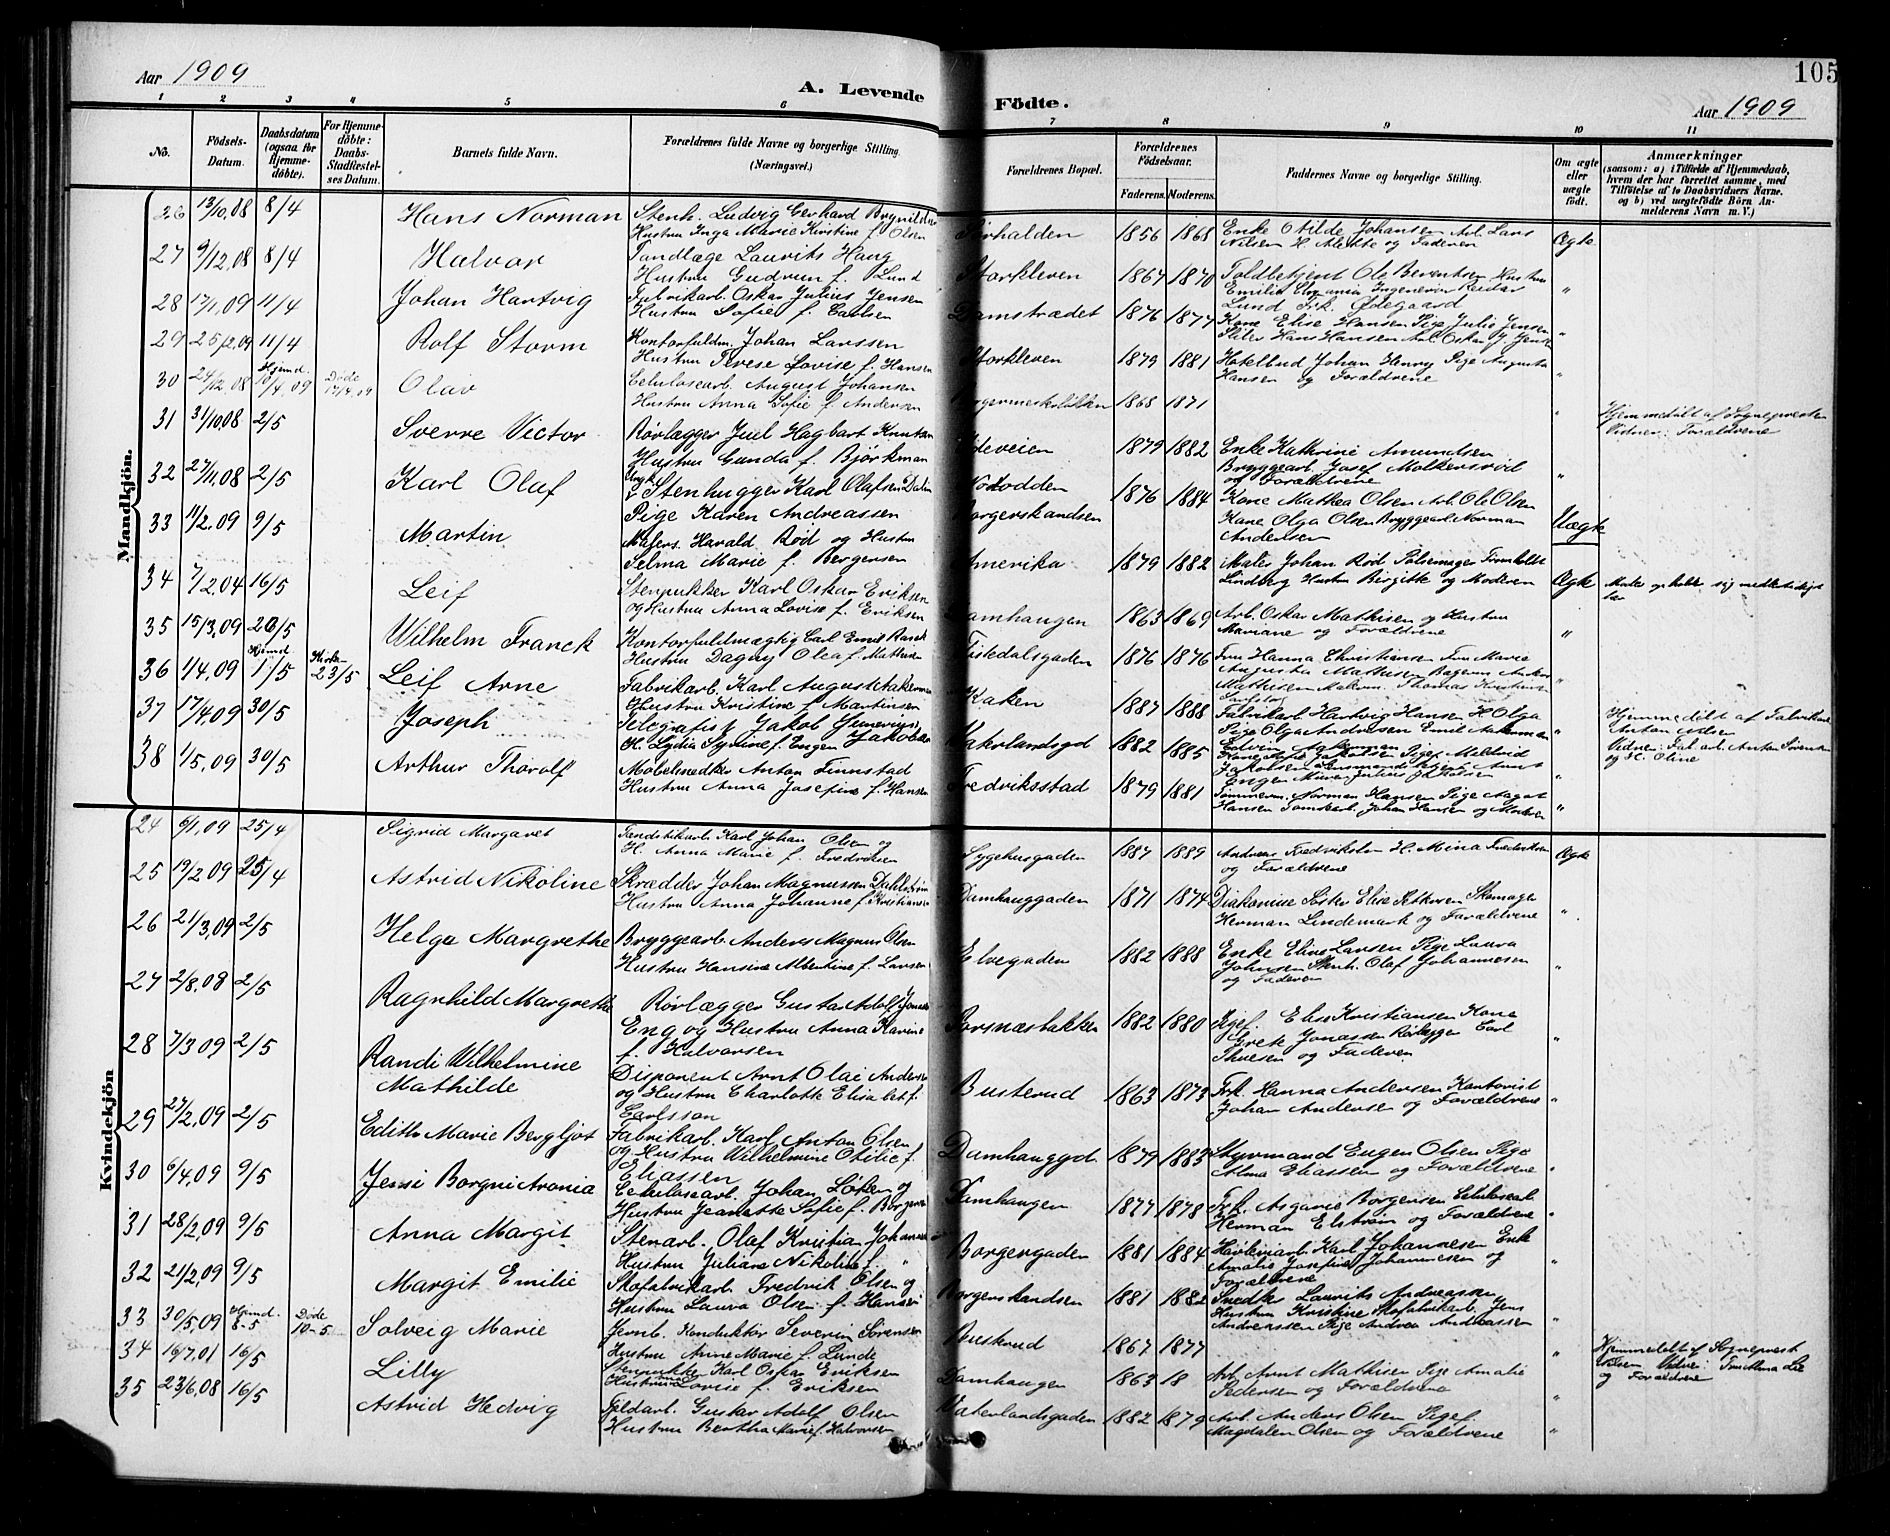 105
Aar 1909
A. Levende Födte.
Aar 1909
1 2 3 4 5 6 7 8 9 10 11
No.
Födsels-Datum.
Daabsdatum (ogsaa for Hjemmedöbte).
For Hjemmedöbte: Daabs-Stadfæstelses Datum.
Barnets fulde Navn.
Forældrenes fulde Navne og borgerlige Stilling. (Næringsvei.)
Forældrenes Bopæl.
Forældrenes Födselsaar.
Faderens. Moderens.
Faddernes Navne og borgerlige Stilling.
Om ægte eller uægte födt.
Anmærkninger (saasom: a) i Tilfælde af Hjemmedaab, hvem der har forrettet samme, med Tilföielse af to Daabsvidners Navne. og b) ved uægtefödte Börn Anmelderens Navn m. V.)
Mandkjön.
26 13/10,08 8/4 Hans Norman Stenh. Ludvig Gerhard
Hustru Inga Marie Kirstine f. Olsen 1856 1868 Enke Otilde Johansen Arb. Lars
Nilsen H. Alette og Faderen Ægte
27 9/12,08 8/4 Halvor Tandlæge Laurits Haug
Hustru Gudrun f. Lund Storkleven 1867 1870 Toldbetjent Ole Berentsen Hustru
Emilie Ingeniör Reidar
Lund Frk. Ødegaard "
28 17/1,09 11/4 Johan Hartvig Fabrikarb. Oskar Julius Jensen
Hustru Sofie f. Carlsen Damstrædet 1876 1877 Kone Elise Hansen Pige Julie Jensen
Hans Hansen Arb. Oskar Jensen "
29 25/2,09 11/4 Rolf Storm Kontorfuldm. Johan Larssen
Hustru Terese Lovise f. Hansen Storkleven 1879 1881 Hotelbud Johan Henry Pige Augusta
Hansen og Forældrene "
30 24/12,08 Hjemd. 10/4,09 Døde 17/4,09 Olav Celulosearb. August Johansen
Hustru Anna Sofie f. Andersen 1868 1871 " Hjemmedøbt af Sognepresten
Vidner: Forældrene
31 31/10,08 2/5 Sverre Victor Rørlægger Juel Hagbart Knutsen
Hustru Gunda f. Björkman Ideveien 1879 1882 Enke Kathrine Amundsen
Bryggearb. Josef Molkersröd
og Forældrene "
32 27/11,08 2/5 Karl Olaf Stenhugger Karl Olafsen
Pige Karen Andreassen 1876 1884 Kone Mathea Olsen Arb. Ole Olsen
Kone Olga Olsen Bryggearb. Norman
Andersen Uægte
33 11/2.09 9/5 Martin Malers. Harald Röd og Hustru
Selma Marie f. Bergersen Amerika 1879 1882 Maler Johan Röd Pölsemager
Lindberg Hustru Birgitte og Moderen Ægte
34 7/2 04 16/5 Leif Stenpukker Karl Oskar Eriksen
og Hustru Anna Lovise f. Eriksen Damhaugen 1863 1869 Arb. Oskar Mathisen og Hustru
Mariane og Forældrene "
35 15/3,09 20/5 Wilhelm Franck Kontorfuldmægtig Carl Emil
Hustru Dagny Olea f. Mathisen Tistedalsgaden 1876 1876 Fru Hanna Christiansen Fru Marie
Augusta Mathisen
Mathisen Thomas "
36 1/4 09 Hjemd. 1/5 Kirke- 23/5 Leif Arne Fabrikarb. Karl August Aakerman
Hustru Kristine f. Martinsen Kaken 1887 1888 Fabrikarb. Hartvig Hansen H. Olga
Pige Olga Andersen Emil Aakerman
Edvin Aakerman Hjemmedøbt af
Anton Olsen
Vidner: Fab. arb. Anton
og H. Oline
37 17/4 09 30/5 Joseph Telegrafist Jakob Jakobsen
H. Lydia f. Engen 1882 1885
38 1/5,09 30/5 Arthur Thorolf Møbelsnedker Anton Finnstad
Hustru Anna Josefine f. Hansen Fredriksstad 1879 1881 Tømmerm. Norman Hansen Pige Aagot
Hansen Tomtearb. Johan Hansen og Moderen "
Kvindekjön
24 6/1,09 25/4 Sigrid Margaret Karl Johan Olsen og
H. Anna Marie f. Fredriksen Sygehusgaden 1887 1889 Andreas Fredriksen H. Mina Fredriksen
og Forældrene Ægte
25 19/2 09 25/4 Astrid Nikoline Skrædder Johan Magnussen Dahlström
Hustru Anna Johanne f. Kristiansen Damhauggaden 1871 1874 Diakonisse Söster Elise Skomager
Herman Lindemark og Forældrene "
26 21/3,09 2/5 Helga Margrethe Bryggearb. Anders Magnus Olsen
Hustru Hansine Albertine f. Larsen Elvegaden 1882 1888 Enke Eline Larsen Pige Laura
Johnsen Stenh. Olaf Johannesen
og Faderen "
27 2/8,08 2/5 Ragnhild Margrethe Rörlægger Gustav Adolf
Eng og Hustru Anna Karine
f. Halvorsen 1882 1880 Pigef. Elise Kristiansen Kone
Grete Jonassen Rörlægger Carl
Thuesen og Faderen "
28 7/3 09 2/5 Randi Wilhelmine
Mathilde Disponent Arnt Olai Andersen
og Hustru Charlotte Elisabet f.
Carlsson Busterud 1863 1873 Frk. Hanna Andersen Kontorist
Johan Andersen og Forældrene "
29 27/2,09 2/5 Edith Marie Bergljot Fabrikarb. Karl Anton Olsen
og Hustru Wilhelmine Otilie f.
Eliassen Damhauggd. 1879 1883 Styrmand Eugen Olsen Pige
Alma Eliassen og Forældrene "
30 6/4,09 9/5 Jenni Borgni Aronia Celulosearb. Johan Löken og
Hustru Jeanette Sofie f. Borgersen Damhaugen 1877 1878 Frk. Borgersen Celulosearb.
Herman Elström og Forældrene "
31 28/2,09 9/5 Anna Margit Stenarb. Olaf Kristian Johannesen
Hustru Juliane Nikoline f. " Borgergaden 1881 1884 Karl Johannesen Enke
Amalie Josefine Johannesen og
Forældrene "
32 21/2,09 9/5 Margit Emilie Skofabrikarb. Fredrik Olsen og
Hustru Laura Olsen f. Hansen 1881 1882 Snedker Laurits Andreassen
Hustru Kristine Skofabrikarb. Jens
Andreassen Pige Andrea Andreassen "
33 30/5,09 Hjemd. 8-5 Døde 10-5 Solveig Marie Jernb. Konduktör Severin Sörensen
Hustru Anne Marie f. Lunde Buskrud 1867 1877 " Hjemmedøbt af Sogneprest
Vidner:
og Forældrene
34 16/7,01 16/5 Lilly Stenpukker Karl Oskar Eriksen
Hustru Lovise f. Eriksen Damhaugen 1863 18 Arb. Arnt Mathisen Pige Amalie
Pedersen og Forældrene "
35 23/6,08 16/5 Astrid Hedvig Gustav Adolf Olsen
Hustru Bertha Marie f. Halvorsen Vaterlandsgaden 1882 1879 Arb. Anders Olsen Pigef.
Magdalen Olsen og Forældrene "